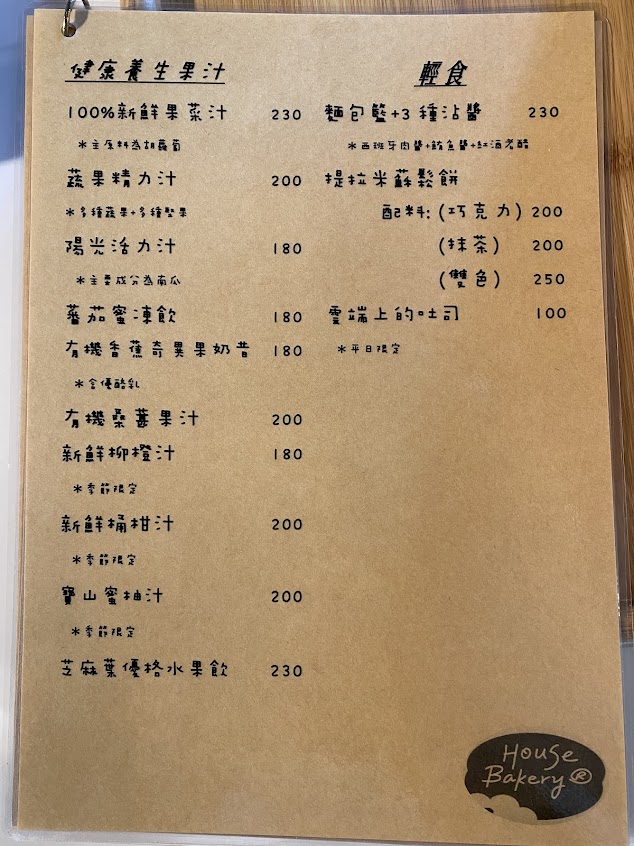 健康養生果汁
100%新鮮果菜汁 230
*主原料為胡蘿蔔
蔬果精力汁 200
*多種蔬果+多種堅果
陽光活力汁 180
*主要成分為南瓜
蕃茄蜜凍飲 180
有機香蕉奇異果奶昔 180
*含優酪乳
有機桑葚果汁 200
新鮮柳橙汁 180
*季節限定
新鮮桶柑汁 200
*季節限定
寶山蜜柚汁 200
*季節限定
芝麻葉優格水果飲 230
輕食
麵包籃+3種沾醬 230
*西班牙肉醬+鮪魚醬+紅酒老醋
提拉米蘇鬆餅
配料:(巧克力) 200
(抹茶) 200
(雙色) 250
雲端上的吐司 100
*平日限定
House
Bakery®